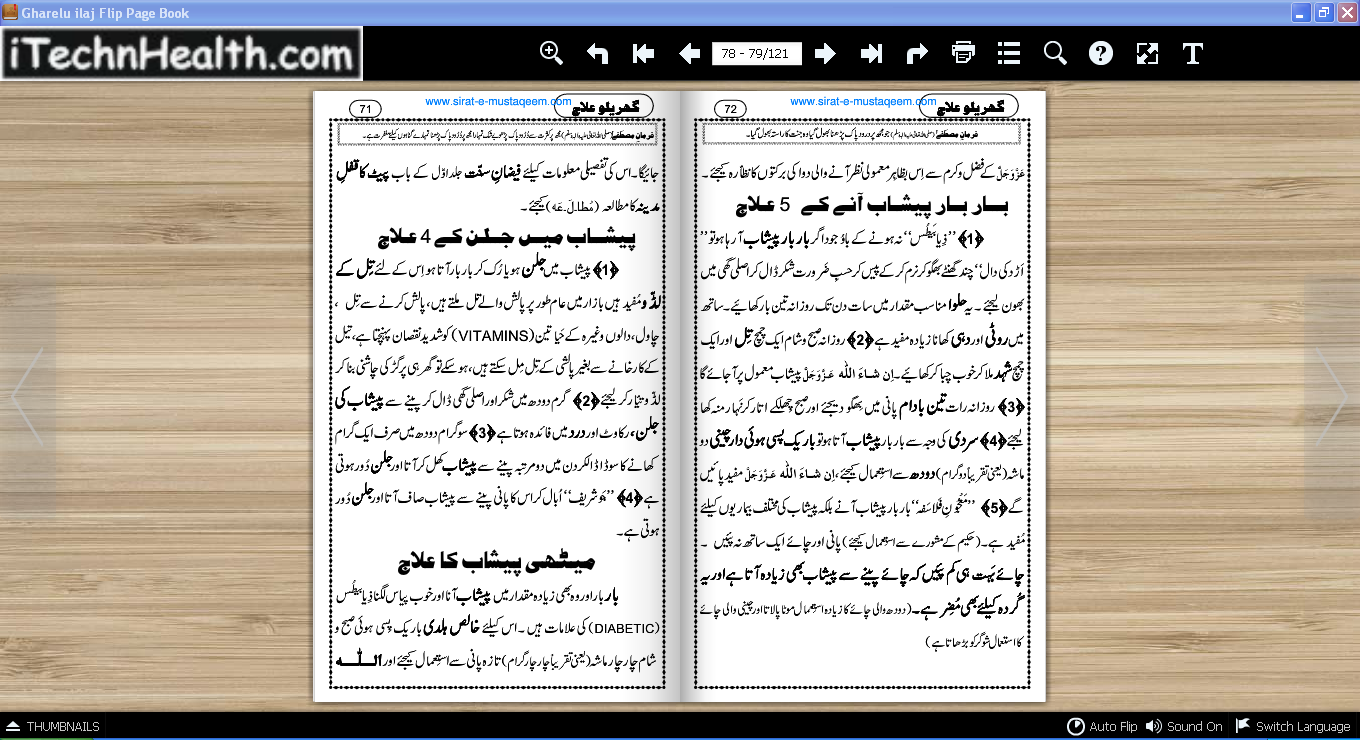 Gharelu ilaj Flip Page Book
iTechnHealth.com
78 - 79/121
T
71
www.sirat-e-mustaqeem.com
گھریلو علاج
فرمانِ مصطفےٰ (صلی اللہ تعالیٰ علیہ والہٖ وسلم) مجھ پر کثرت سے دُرُود پاک پڑھو بے شک تمہارا مجھ پر دُرُود پاک پڑھنا تمہارے گناہوں کیلئے مغفرت ہے۔
جائیگا۔ اس کی تفصیلی معلومات کیلئے فیضانِ سنّت جلد اوّل کے باب پیٹ کا قفلِ
مدینہ کا مطالعہ (مُطا۔لَ۔عَہ) کیجئے۔
پیشاب میں جلن کے 4 علاج
﴿1﴾ پیشاب میں جلن ہو یا رُک کر بار بار آتا ہو اِس کے لئے تِل کے
لڈّو مُفید ہیں بازار میں عام طور پر پالش والے تل ملتے ہیں، پالش کرنے سے تِل ،
چاول، دالوں وغیرہ کے حَیاتین (VITAMINS) کو شدید نقصان پہنچتا ہے، تیل
کے کارخانے سے بغیر پالش کے تِل مِل سکتے ہیں، ہو سکے تو گھر ہی پر گڑ کی چاشنی بنا کر
لڈّو تیّار کر لیجئے ﴿2﴾ گرم دودھ میں شکر اور اصلی گھی ڈال کر پینے سے پیشاب کی
جلن، رکاوٹ اور درد میں فائدہ ہوتا ہے ﴿3﴾ سو گرام دودھ میں صرف ایک گرام
کھانے کا سوڈا ڈال کر دن میں دو مرتبہ پینے سے پیشاب کھل کر آتا اور جلن دُور ہوتی
ہے ﴿4﴾ ’’جَو شریف‘‘ اُبال کر اس کا پانی پینے سے پیشاب صاف آتا اور جلن دُور
ہوتی ہے۔
میٹھی پیشاب کا علاج
بار بار اور وہ بھی زیادہ مقدار میں پیشاب آنا اور خوب پیاس لگنا ذِیا بیطُس
(DIABETIC) کی علامات ہیں۔ اس کیلئے خالص ہلدی باریک پسی ہوئی صبح و
شام چار چار ماشہ (یعنی تقریباً چار چار گرام) تازہ پانی سے استِعمال کیجئے اور اللہ
72
www.sirat-e-mustaqeem.com
گھریلو علاج
فرمانِ مصطفےٰ (صلی اللہ تعالیٰ علیہ والہٖ وسلم) جو مجھ پر درود پاک پڑھنا بھول گیا وہ جنت کا راستہ بھول گیا۔
عَزَّوَجَلَّ کے فضل و کرم سے اِس بظاہر معمولی نظر آنے والی دوا کی برکتوں کا نظّارہ کیجئے۔
بار بار پیشاب آنے کے 5 علاج
﴿1﴾ ’’ذِیا بَیْطُس‘‘ نہ ہونے کے باوُجود اگر بار بار پیشاب آرہا ہو تو ’’
اُڑد کی دال‘‘ چند گھنٹے بھگو کر نرم کر کے پیس کر حسبِ ضَرورت شکر ڈال کر اصلی گھی میں
بھون لیجئے۔ یہ حلوا مناسب مقدار میں سات دن تک روزانہ تین بار کھائیے۔ ساتھ
میں روٹی اور دہی کھانا زیادہ مفید ہے ﴿2﴾ روزانہ صبح و شام ایک چمچ تِل اور ایک
چمچ شہد ملا کر خوب چبا کر کھائیے۔ اِن شاءَ اللہ عَزَّوَجَلَّ پیشاب معمول پر آجائے گا
﴿3﴾ روزانہ رات تین بادام پانی میں بھگو دیجئے اور صبح چھلکے اتار کر نَہار منہ کھا
لیجئے ﴿4﴾ سردی کی وجہ سے بار بار پیشاب آتا ہو تو باریک پسی ہوئی دار چینی دو
ماشہ (یعنی تقریباً دو گرام) دودھ سے استِعمال کیجئے، اِن شاءَ اللہ عَزَّوَجَلَّ مفید پائیں
گے ﴿5﴾ ’’مَعْجُونِ فَلاسَفہ‘‘ بار بار پیشاب آنے بلکہ پیشاب کی مختلف بیماریوں کیلئے
مُفید ہے۔ (حکیم کے مشورے سے استِعمال کیجئے) پانی اور چائے ایک ساتھ نہ پئیں۔
چائے بَہُت ہی کم پئیں کہ چائے پینے سے پیشاب بھی زیادہ آتا ہے اور یہ
گُردہ کیلئے بھی مُضِر ہے۔ (دودھ والی چائے کا زیادہ استِعمال موٹاپا لاتا اور چینی والی چائے
کا استعال شوگر کو بڑھاتا ہے)
THUMBNAILS
Auto Flip
Sound On
Switch Language